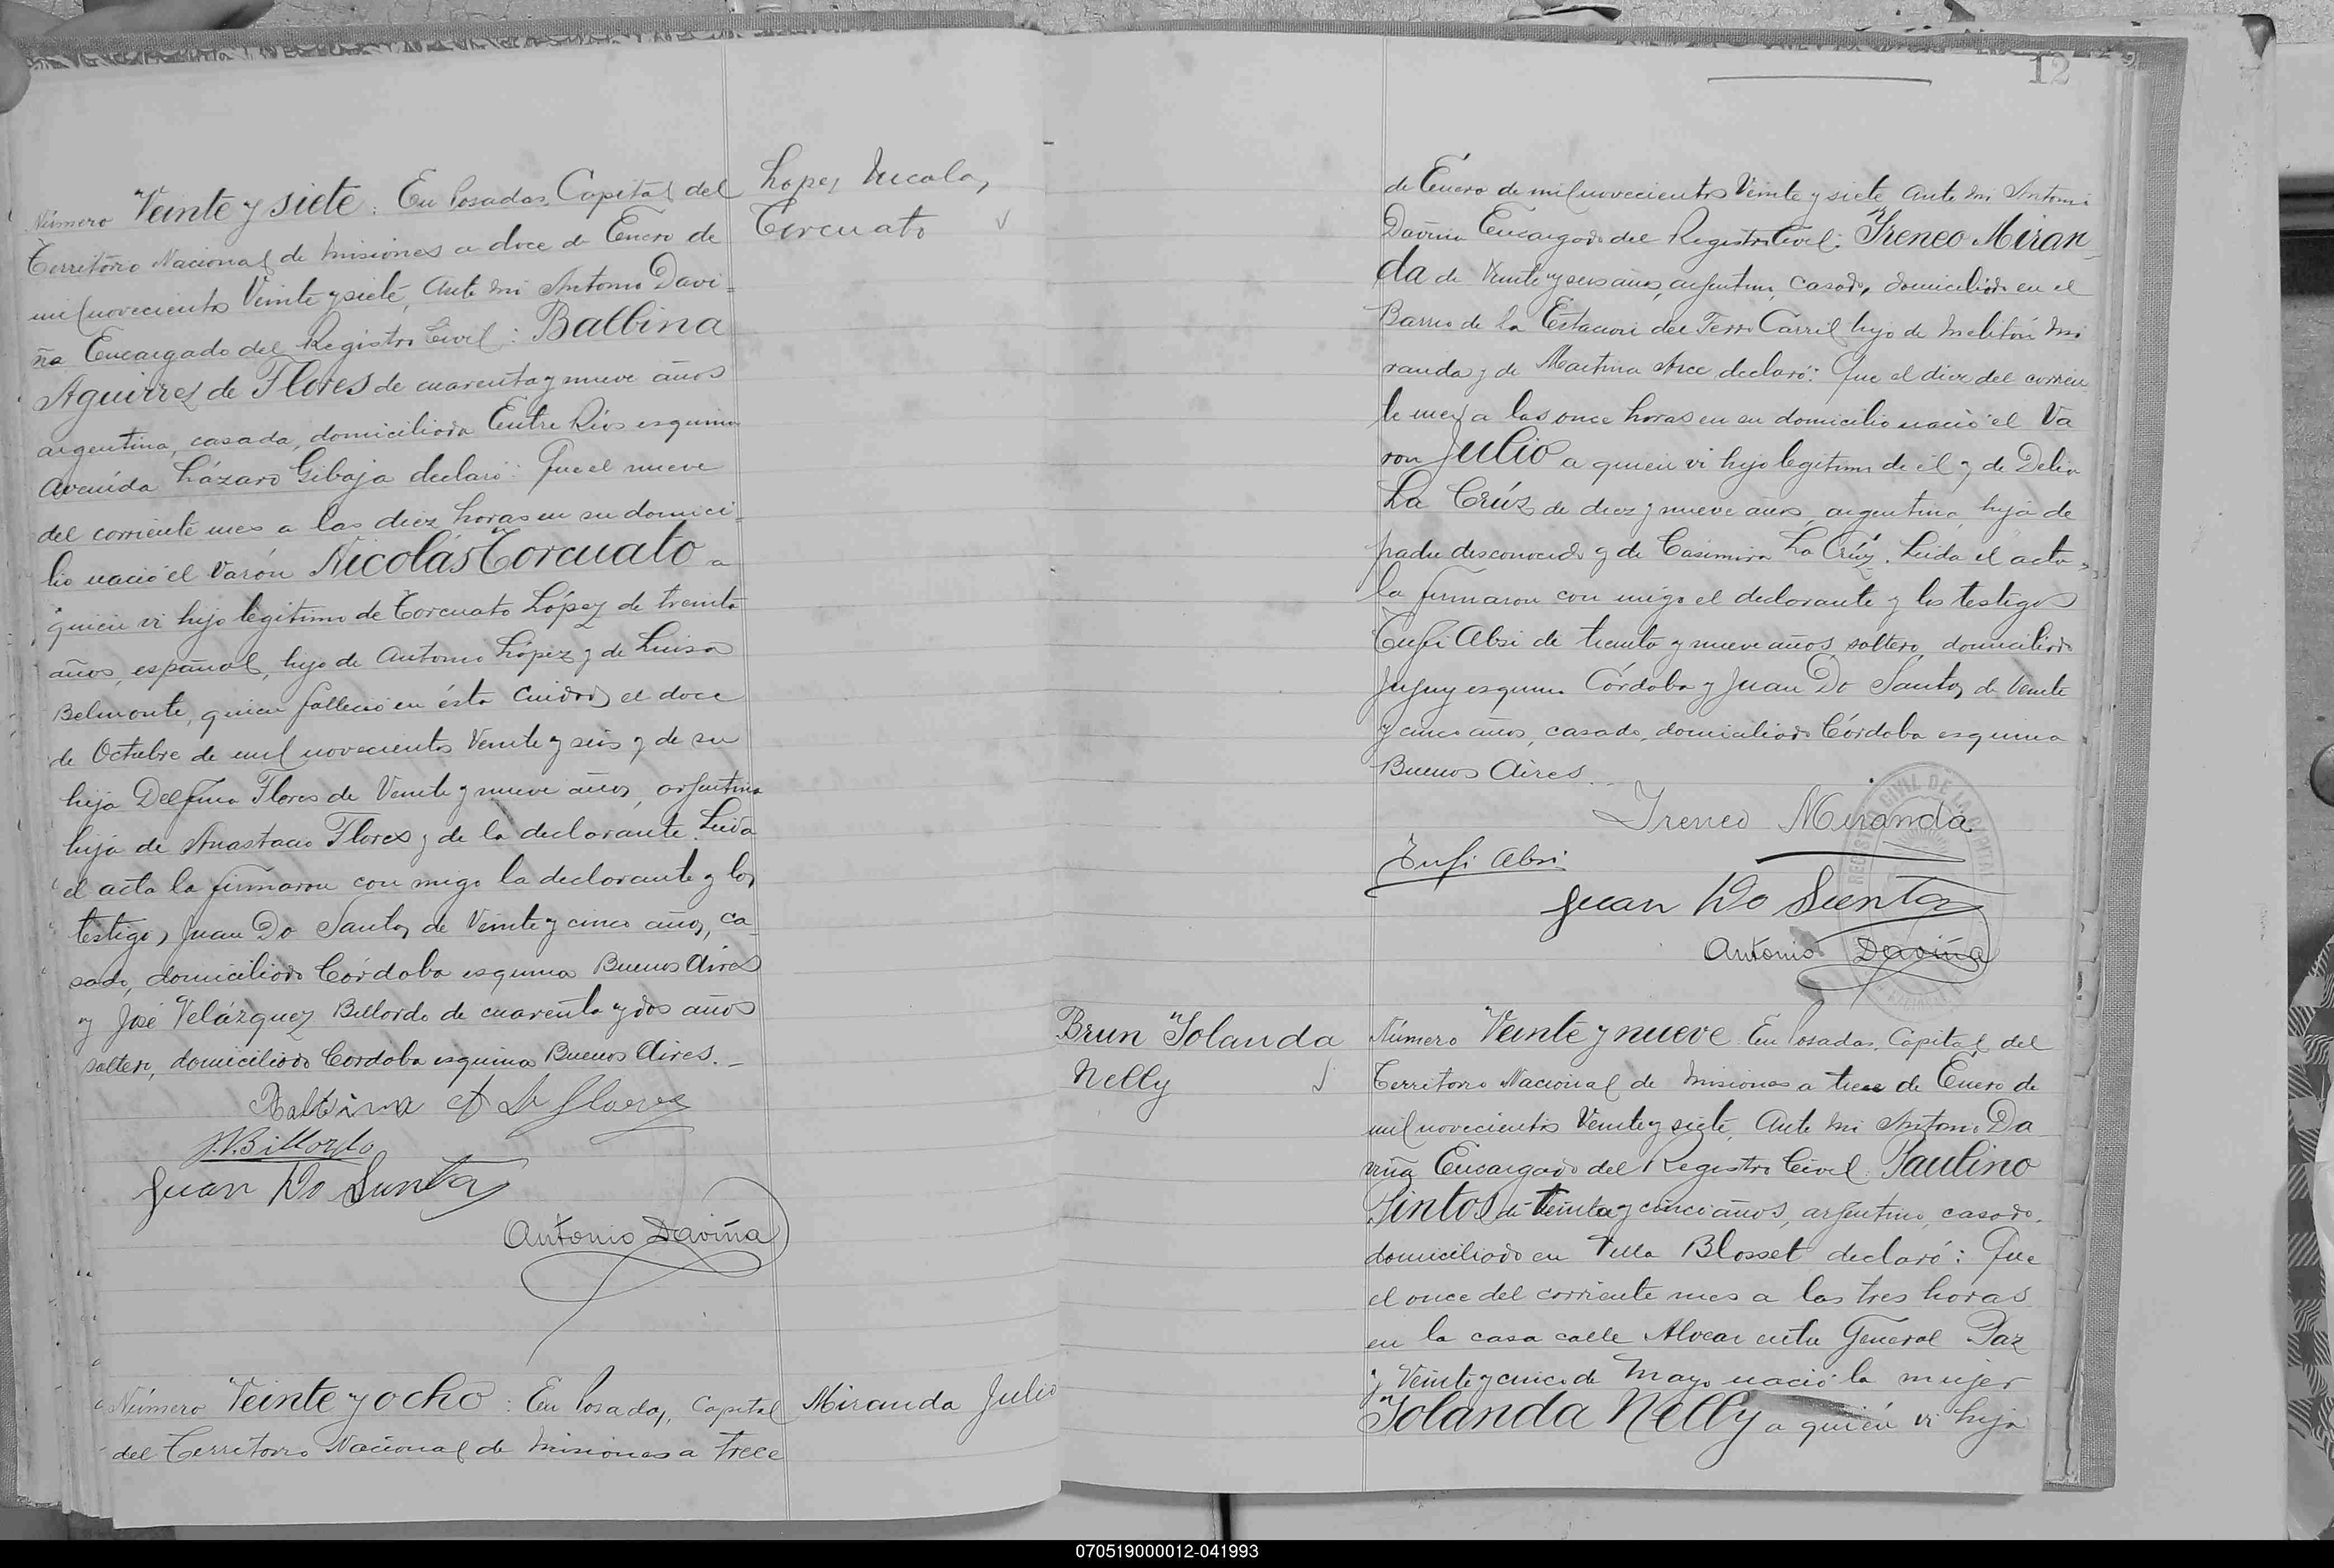 Lopez Nicolas
Torcuato
Número Veinte y siete: En Posadas, Capital del
Territorio Nacional de Misiones a doce de Enero de
mil novecientos Veinte y siete, Ante mi Antonio Davi-
ña Encargado del Registro Civil: Balbina
Aguirrez de Flores de cuarenta y nueve años
argentina, casada, domiciliada Entre Ríos esquina
Avenida Lázaro Gibaja declaró: Que el nueve
del corriente mes a las diez horas en su domici-
lio nació el Varón Nicolás Torcuato a
quien vi hijo legitimo de Torcuato López de treinta
años, español, hijo de Antonio López y de Luisa
Belmonte, quien falleció en ésta Ciudad el doce
de Octubre de mil novecientos Veinte y seis y de su
hija Delfina Flores de Veinte y nueve años, argentina
hija de Anastacio Flores y de la declarante. Leida
el acta la firmaron con migo la declarante y los
testigos Juan Do Santos de Veinte y cinco años, ca-
sado, domiciliado Córdoba esquina Buenos Aires
y José Velázquez Billordo de cuarenta y dos años
soltero, domiciliado Cordoba esquina Buenos Aires.-
Balbina A de Flores
J.V.Billordo
Juan Do Santos
Antonio Daviña
Número Veinte y ocho: En Posadas, Capital
del Territorio Nacional de Misiones a trece
Miranda Julio
12
de Enero de mil novecientos Veinte y siete Ante mi Antoni
Daviña Encargado del Registro Civil: Ireneo Miran-
da de Veinte y seis años, argentino, casado, domiciliado en el
Barrio de la Estacion del Ferro Carril hijo de Melitón Mi
randa y de Martina Arce declaró: Que el diez del corrien
te mes a las once horas en su domicilio nació el Va
ron Julio a quien vi hijo legitimo de él y de Delia
La Crúz de diez y nueve años, argentina, hija de
padre desconocido y de Casimira La Crúz. Leida el acta
la firmaron con migo el declarante y los testigos
Tufi Absi de treinta y nueve años, soltero, domiciliado
Jujuy esquina Córdoba y Juan Do Santos de Veinte
y cinco años, casado, domiciliado Córdoba esquina
Buenos Aires
Ireneo Miranda
Tufi Absi
Juan Do Santos
Antonio Daviña
REGISTRO CIVIL DE LA CAPITAL
Brun Yolanda
Nelly
Número Veinte y nueve En Posadas, Capital del
Territorio Nacional de Misiones a trece de Enero de
mil novecientos Veinte y siete, Ante mi Antonio Da
viña Encargado del Registro Civil Paulino
Pintos de treinta y cinco años, argentino, casado,
domiciliado en Villa Blosset declaró: Que
el once del corriente mes a las tres horas
en la casa calle Alvear entre General Paz
y Veinte y cinco de Mayo nació la mujer
Yolanda Nelly a quién vi hija
070519000012-041993